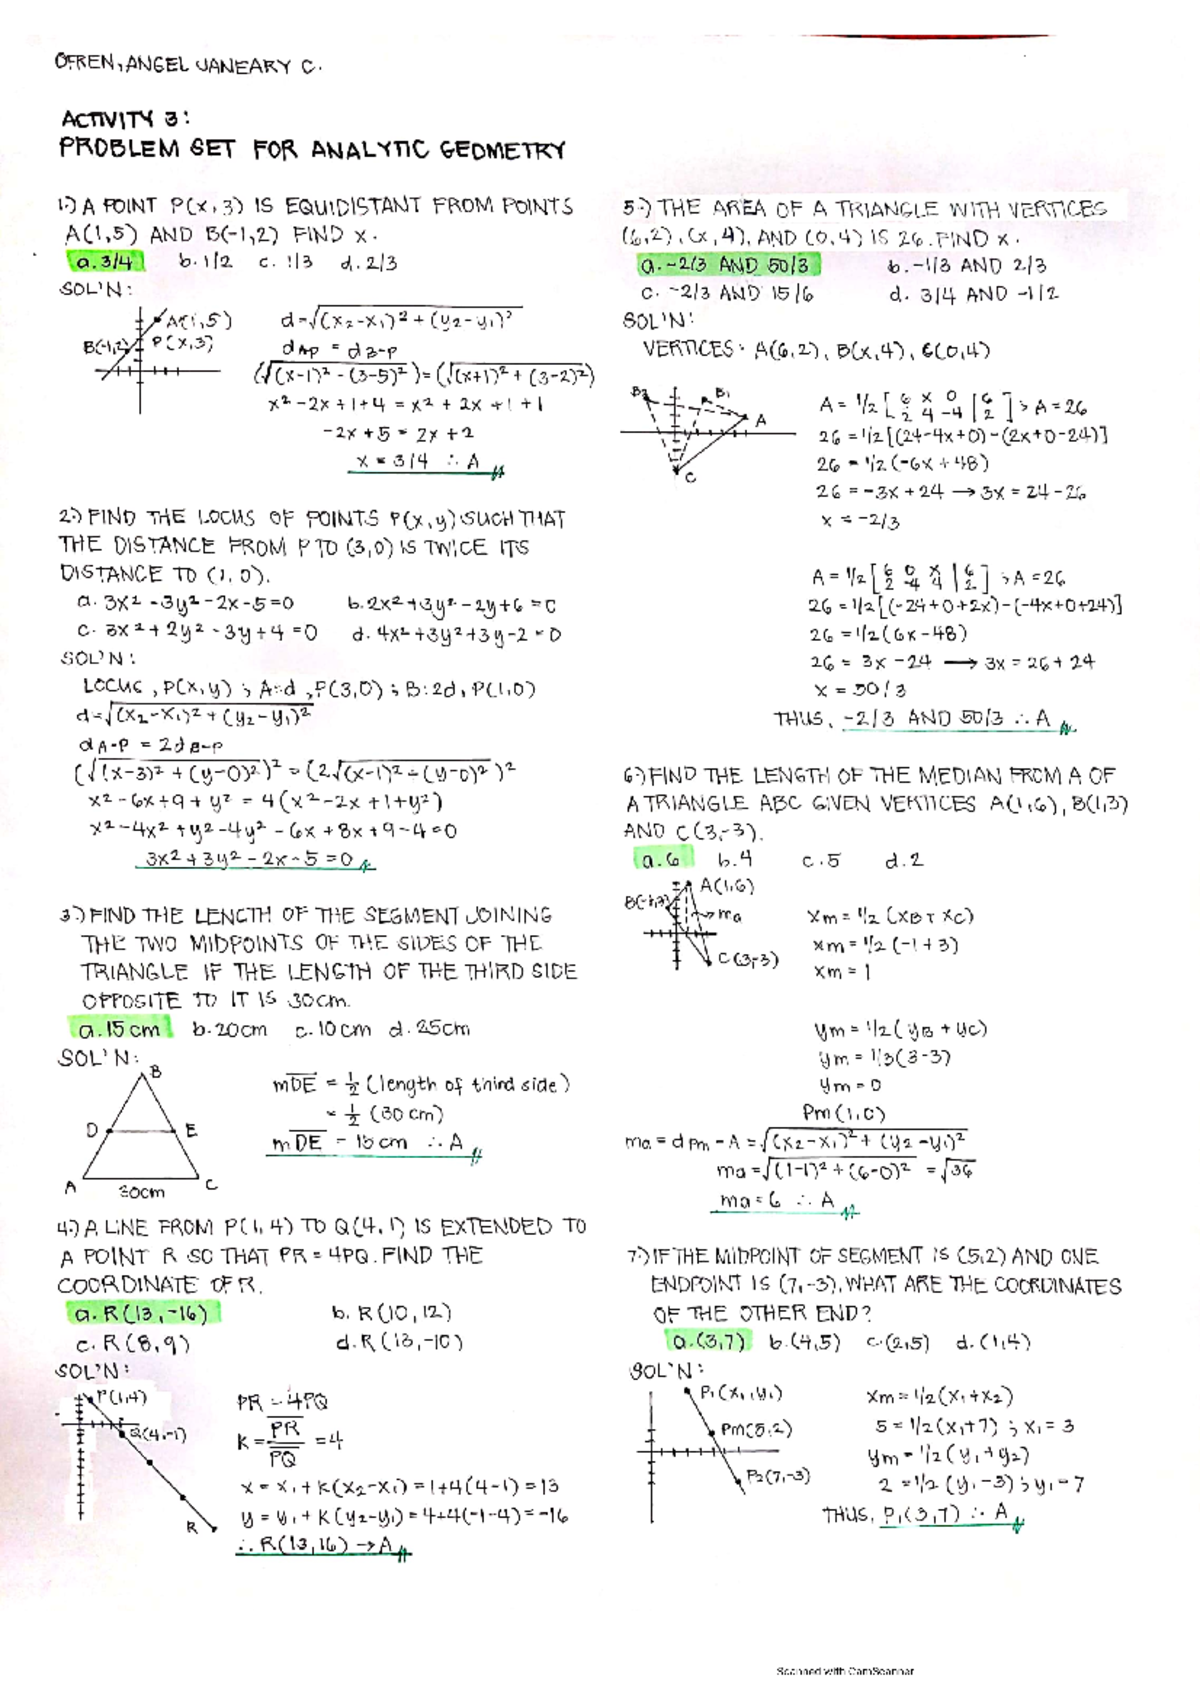 OFREN, ANGEL JANEARY C.
ACTIVITY 3:
PROBLEM SET FOR ANALYTIC GEOMETRY
1.) A POINT P(X, 3) IS EQUIDISTANT FROM POINTS
A(1,5) AND B(-1,2) FIND X.
a. 3/4 b. 1/2 c. 1/3 d. 2/3
SOL'N:
A(1,5)
B(-1,2) P(X,3)
d=√(x₂-x₁)²+(y₂-y₁)²
dAP = dB-P
(√(x-1)²-(3-5)²)=(√(x+1)²+(3-2)²)
x²-2x+1+4 = x²+2x+1+1
-2x+5 = 2x+2
x = 3/4 ∴ A
2.) FIND THE LOCUS OF POINTS P(x,y) SUCH THAT
THE DISTANCE FROM P TO (3,0) IS TWICE ITS
DISTANCE TO (1,0).
a. 3x²-3y²-2x-5=0 b. 2x²+3y²-2y+6=0
c. 3x²+2y²-3y+4=0 d. 4x²+3y²+3y-2=0
SOL'N:
LOCUS, P(x,y) ; A=d, P(3,0) ; B:2d, P(1,0)
d=√(x₂-x₁)²+(y₂-y₁)²
dA-P = 2dB-P
(√(x-3)²+(y-0)²)²=(2√(x-1)²+(y-0)²)²
x²-6x+9+y² = 4(x²-2x+1+y²)
x²-4x²+y²-4y²-6x+8x+9-4=0
3x²+3y²-2x-5=0
3.) FIND THE LENGTH OF THE SEGMENT JOINING
THE TWO MIDPOINTS OF THE SIDES OF THE
TRIANGLE IF THE LENGTH OF THE THIRD SIDE
OPPOSITE TO IT IS 30cm.
a. 15 cm b. 20cm c. 10 cm d. 25cm
SOL'N:
B
D E
A 30cm C
mDE = 1/2 (length of third side)
= 1/2 (30 cm)
mDE = 15 cm ∴ A
4.) A LINE FROM P(1,4) TO Q(4,1) IS EXTENDED TO
A POINT R SO THAT PR = 4PQ. FIND THE
COORDINATE OF R.
a. R(13,-16) b. R(10,12)
c. R(8,9) d. R(13,-10)
SOL'N:
P(1,4)
Q(4,-1)
R
PR = 4PQ
K = PR/PQ = 4
x = x₁+K(x₂-x₁) = 1+4(4-1) = 13
y = y₁+K(y₂-y₁) = 4+4(-1-4) = -16
∴ R(13,16) → A
5.) THE AREA OF A TRIANGLE WITH VERTICES
(6,2), (x,4), AND (0,4) IS 26. FIND X.
a. -2/3 AND 50/3 b. -1/3 AND 2/3
c. -2/3 AND 15/6 d. 3/4 AND -1/2
SOL'N:
VERTICES: A(6,2), B(x,4), C(0,4)
B₂ B₁
A
C
A = 1/2 [6 x 0 | 6 ] ; A=26
2 4 -4 | 2
26 = 1/2[(24-4x+0)-(2x+0-24)]
26 = 1/2(-6x+48)
26 = -3x+24 → 3x = 24-26
x = -2/3
A = 1/2 [6 0 x | 6 ] ; A=26
2 -4 4 | 2
26 = 1/2[(-24+0+2x)-(-4x+0+24)]
26 = 1/2(6x-48)
26 = 3x-24 → 3x = 26+24
x = 50/3
THUS, -2/3 AND 50/3 ∴ A
6.) FIND THE LENGTH OF THE MEDIAN FROM A OF
A TRIANGLE ABC GIVEN VERTICES A(1,6), B(1,3)
AND C(3,-3).
a. 6 b. 4 c. 5 d. 2
A(1,6)
ma
C(3,-3)
xm = 1/2 (xB + xC)
xm = 1/2 (-1+3)
xm = 1
ym = 1/2 (yB + yC)
ym = 1/3 (3-3)
ym = 0
Pm(1,0)
ma = dPm-A = √(x₂-x₁)²+(y₂-y₁)²
ma = √(1-1)²+(6-0)² = √36
ma = 6 ∴ A
7.) IF THE MIDPOINT OF SEGMENT IS (5,2) AND ONE
ENDPOINT IS (7,-3), WHAT ARE THE COORDINATES
OF THE OTHER END?
a. (3,7) b. (4,5) c. (2,5) d. (1,4)
SOL'N:
P₁(x₁,y₁)
Pm(5,2)
P₂(7,-3)
xm = 1/2(x₁+x₂)
5 = 1/2(x₁+7) ; x₁ = 3
ym = 1/2(y₁+y₂)
2 = 1/2(y₁-3) ; y₁ = 7
THUS, P₁(3,7) ∴ A
Scanned with CamScanner